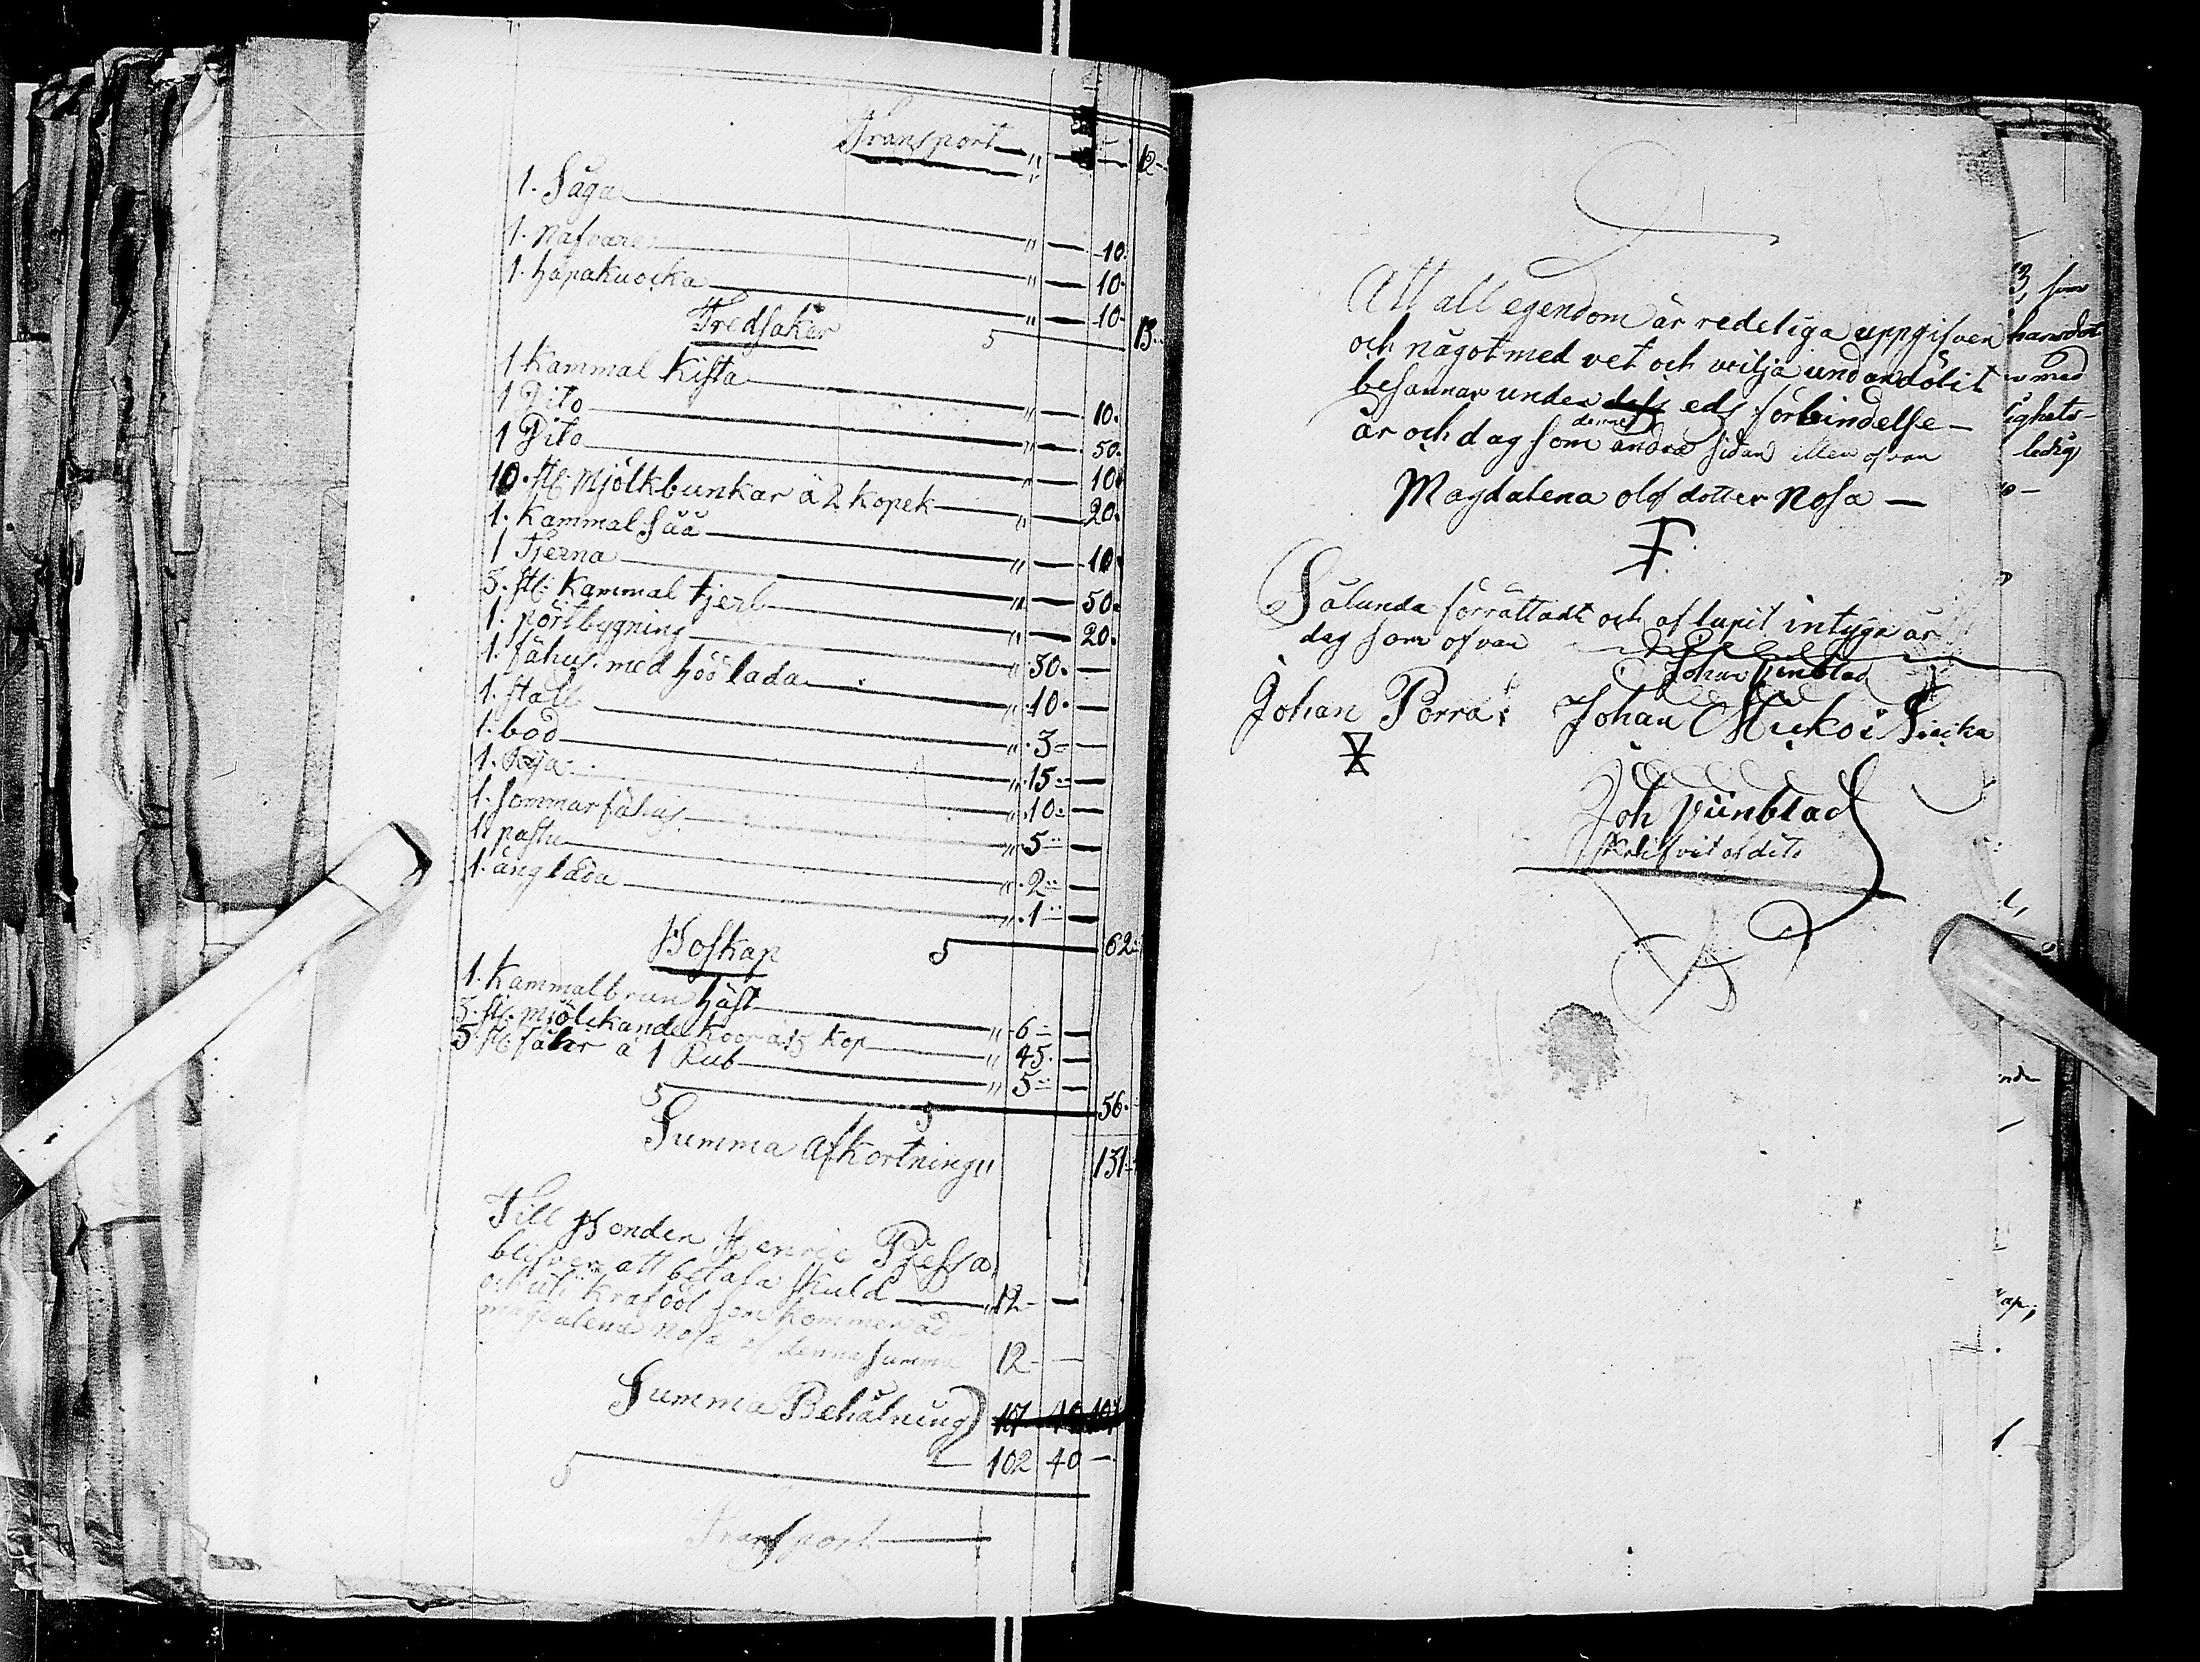 Transport " — — 12 -
1. Såga " — 10.
1. Nafvare " — 10.
1. hapakuocka " — 10.
5 — 13
Tredsaker
1 Kammal Kista " — 10.
1 Dito " — 50.
1 Dito " — 10.
10. st: Mjölkbunkar à 2 kopek " — 20.
1. Kammal Såå " — 10
1 Tjerna " — 50.
5. st: Kammal tjerl " — 20.
1. pörtbygning " 30. —
1. fähus med höölada " 10. —
1. stall " 3 - —
1. bod " 15 - —
1. Rija " 10 - —
1. sommarfähus " 5 - —
1. pastu " 2 - —
1. änglada " 1 - —
5 — 62
Boskap
1. Kammal brun häst " 6 - —
3. st. mjölckande koor à 15 kop " 45. —
5. st. fåhr à 1 Rub " 5 - —
5 5 — 56.
Summa Afkortning " 131
Till Bonden Henric Pjessa
blifver att betala skuld " 12 - —
och uti krafööl som kommer åd
magdalena Nosa af denna summa 12 - —
Summa Behålning 107 40 107
102 40 —
5
Transport
Att all egendom är redeliga uppgifven
och något med vet och vilja undandölit
besannar under dess eds förbindelse —
denna
år och dag som andra sidan eller ofvan
Magdalena olofdotter Nosa —
Sålunda förrättadt och aflupit intyga år
dag som ofvan
Johan Vinblad
Johan Porra: Johan Mickoi Sicka
Joh Vinblad
skrifvit ordits
3, som
hansdot
med
ighets-
ledig
ap,